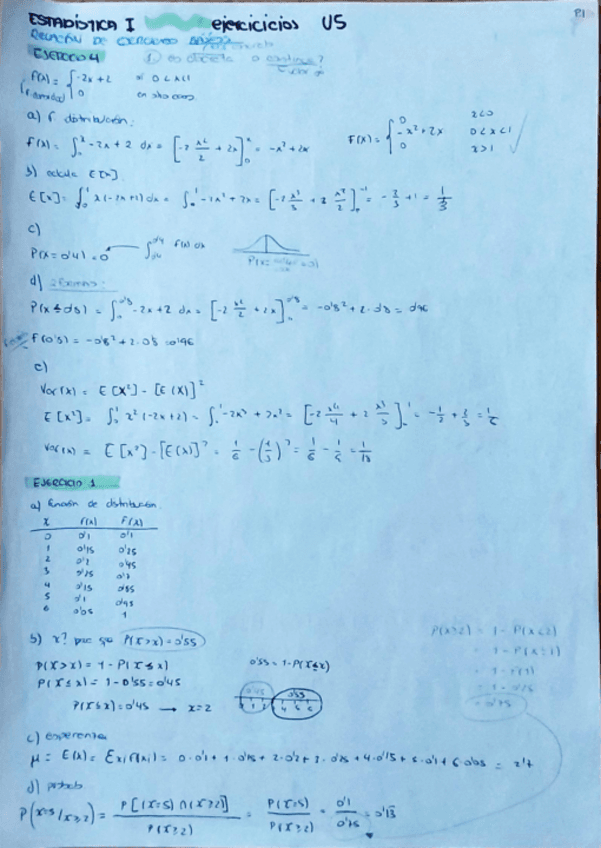 P.1
ESTADÍSTICA I ejercicicios U5
RELACIÓN DE
EJERCICIO 4 ① es discreta o continua?
f(x) = { -2x+2 si 0<x<1
0 en otro caso
a) F distribución:
F(x) = ∫₀ˣ -2x+2 dx = [-2 x²/2 + 2x]₀ˣ = -x²+2x
F(x) = { 0 x<0
-x²+2x 0<x<1
0 x>1
b) calcula E[x].
E[x] = ∫₀¹ x(-2x+2)dx = ∫₀¹ -2x²+2x = [-2 x³/3 + 2 x²/2]₀¹ = -2/3 + 1 = 1/3
c)
P(x=0'4) = 0 f(x) dx
d) 2 formas:
-2x+2 dx = [-2 x²/2 + 2x] = -0'8² + 2·0'8 = 0'96
F(0'8) = -0'8² + 2·0'8 = 0'96
e)
Var(x) = E[X²] - [E(X)]²
E[x²] = ∫₀¹ x²(-2x+2) = ∫₀¹ -2x³+2x² = [-2 x⁴/4 + 2 x³/3]₀¹ = -1/2 + 2/3 = 1/6
Var(x) = E[x²] - [E(x)]² = 1/6 - (1/3)² = 1/6 - 1/9 = 1/18
EJERCICIO 1
a) función de distribución.
x f(x) F(x)
0 0'1 0'1
1 0'15 0'25
2 0'2 0'45
3 0'25 0'7
4 0'15 0'85
5 0'1 0'95
6 0'05 1
b) x? para que P(X>x) = 0'55
P(X>x) = 1 - P(X≤x) 0'55 = 1-P(X≤x)
P(X≤x) = 1-0'55 = 0'45
P(X≤x) = 0'45 → x=2
0'45 0'55
P(x≥2) = 1 - P(x<2)
= 1 - P(x≤1)
= 1 - F(1)
= 1 - 0'25
= 0'75
c) esperanza
μ = E(x) = Σxi f(xi) = 0·0'1 + 1·0'15 + 2·0'2 + 3·0'25 + 4·0'15 + 5·0'1 + 6·0'05 = 2'7
d) probab
P(x=5/x≥2) = P[(X=5) ∩ (X≥2)] / P(X≥2) = P(X=5) / P(X≥2) = 0'1 / 0'75 = 0'13